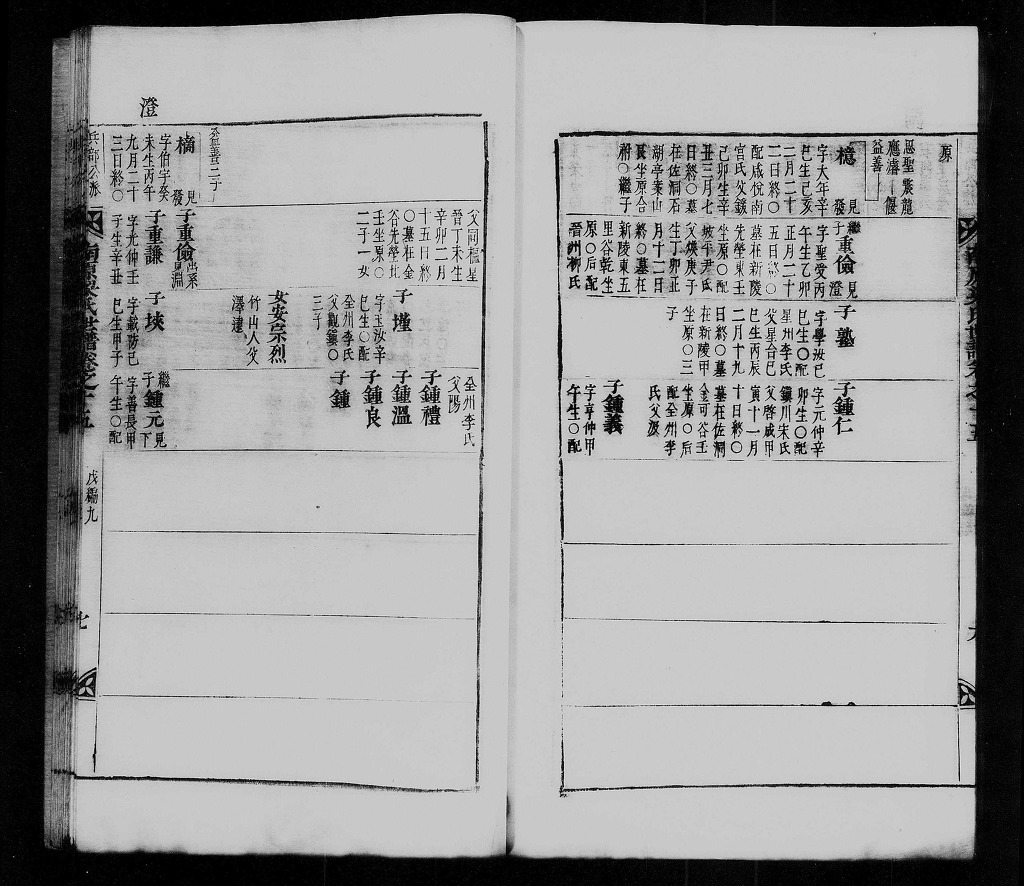 原
恩聖震龍
應濬一偃
益善一
檍
見
發
字大年辛
巳生己亥
二月二十
二日終○
配咸悅南
宮氏父鎮
己卯生辛
丑三月七
日終○墓
在佐洞石
湖亭案山
艮坐原合
祔○繼子
繼
子重儉見
澄
字聖受丙
午生乙卯
正月二十
五日終○
墓在新陵
先塋東壬
坐原○配
坡平尹氏
父煥庚子
生丁卯正
月十二日
終○墓在
新陵東五
里谷乾坐
原○后配
晉州柳氏
子塾
字學汝己
巳生○配
星州李氏
父星合己
巳生丙辰
二月十九
日終○墓
在新陵甲
坐原○三
子
子鍾仁
字元仲辛
卯生○配
鎮川宋氏
父啓咸甲
寅十一月
十日終○
墓在佐洞
金可谷壬
坐原○后
配全州李
氏父源
子鍾義
字亨仲甲
午生○配
澄
益善二子
父同樞星
晉丁未生
辛卯二月
十五日終
○墓在金
谷先塋北
壬坐原○
二子一女
子墐
字玉汝辛
巳生○配
全州李氏
父觀鎮○
三子
女安宗烈
竹山人父
澤建
全州李氏
父陽
子鍾禮
子鍾溫
子鍾良
子鍾
樀
見
發
字伯宇癸
未生丙午
九月二十
三日終○
子重儉出系
見淵
子重謙
字允仲壬
子生辛丑
子埉
字載膓己
巳生甲子
繼
子鍾元見
下
字善長甲
午生○配
兵部公派
戊編九
七